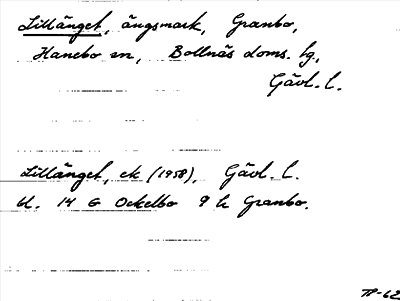 Lillänget, ängsmark, Granbo,
Hanebo sn, Bollnäs doms. tg,
Gävl. l.
Lillänget, ek (1958), Gävl. l.
bl. 14 G Ockelbo 9 h Granbo.
TP-62